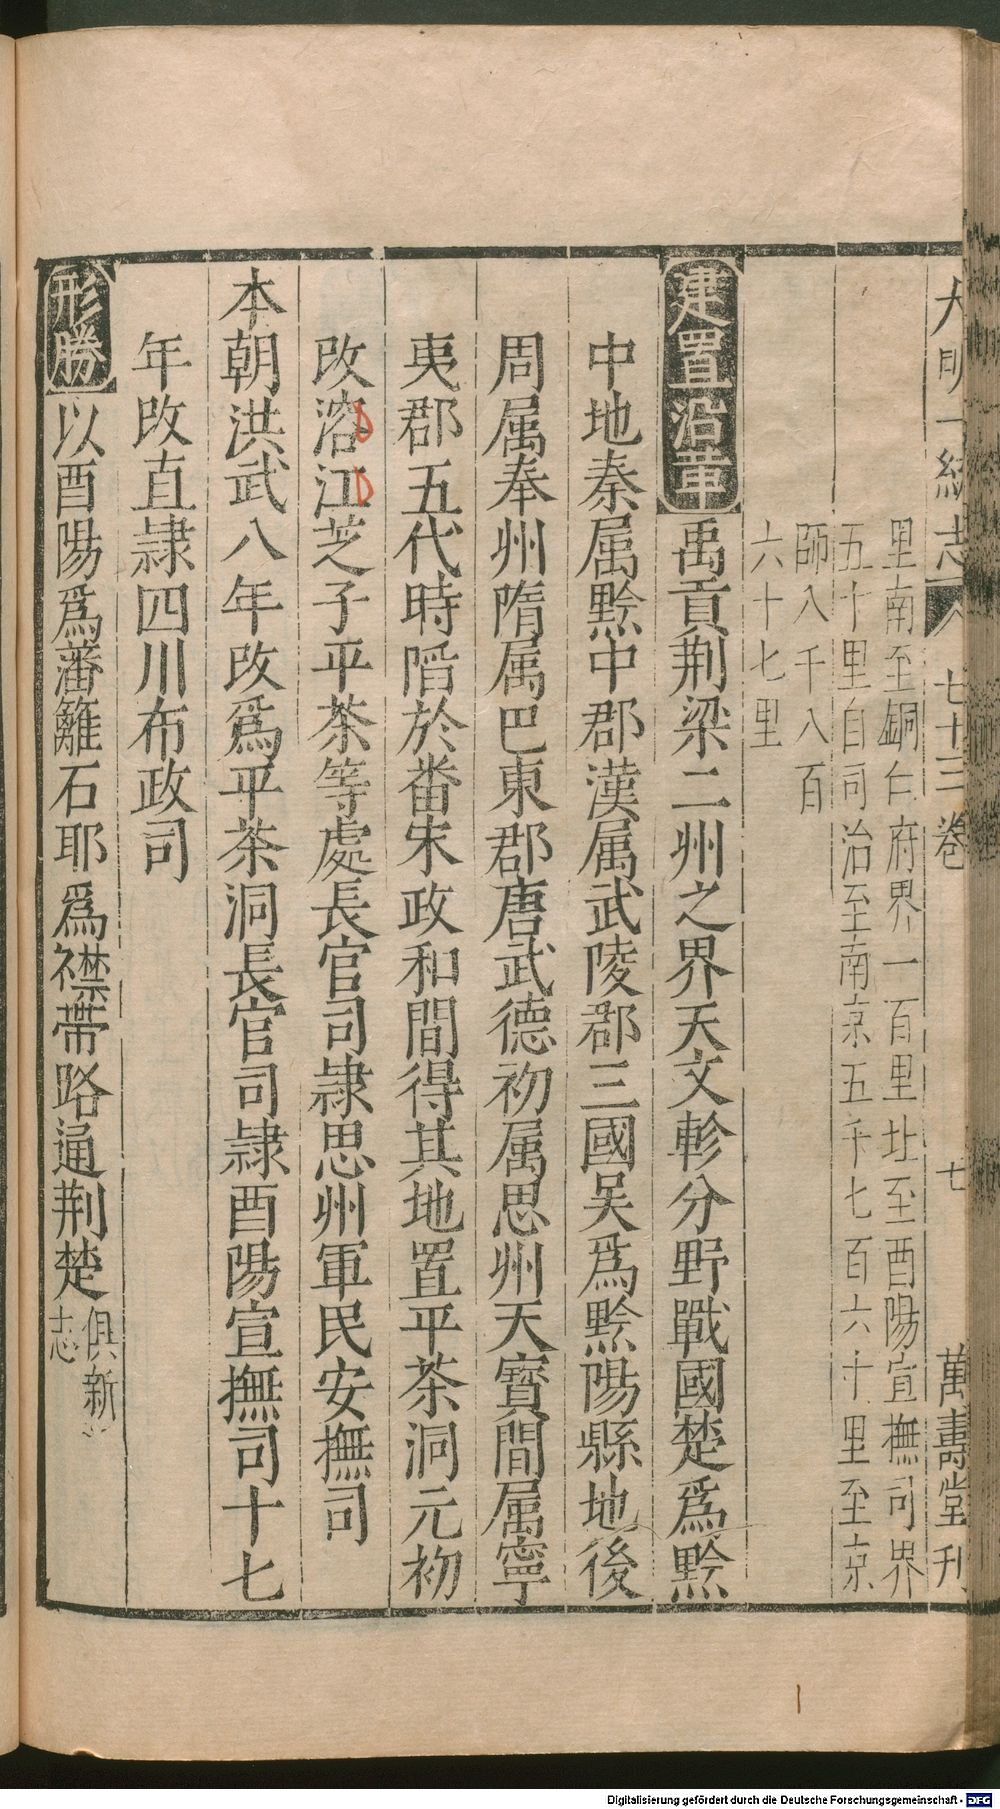 大明一統志 八 七十三卷 七 萬壽堂刊
里南至銅仁府界一百里北至酉陽宣撫司界
五十里自司治至南京五千七百六十里至京
師八千八百
六十七里
建置沿革 禹貢荆梁二州之界天文軫分野戰國楚爲黔
中地秦属黔中郡漢属武陵郡三國吴爲黔陽縣地後
周属奉州隋属巴東郡唐武德初属思州天寳間属寧
夷郡五代時陷於番宋政和間得其地置平茶洞元初
改溶江芝子平茶等處長官司隷思州軍民安撫司
本朝洪武八年改爲平茶洞長官司隷酉陽宣撫司十七
年改直隷四川布政司
形勝 以酉陽爲藩籬石耶爲襟帶路通荆楚 俱新
志
Digitalisierung gefördert durch die Deutsche Forschungsgemeinschaft - DFG